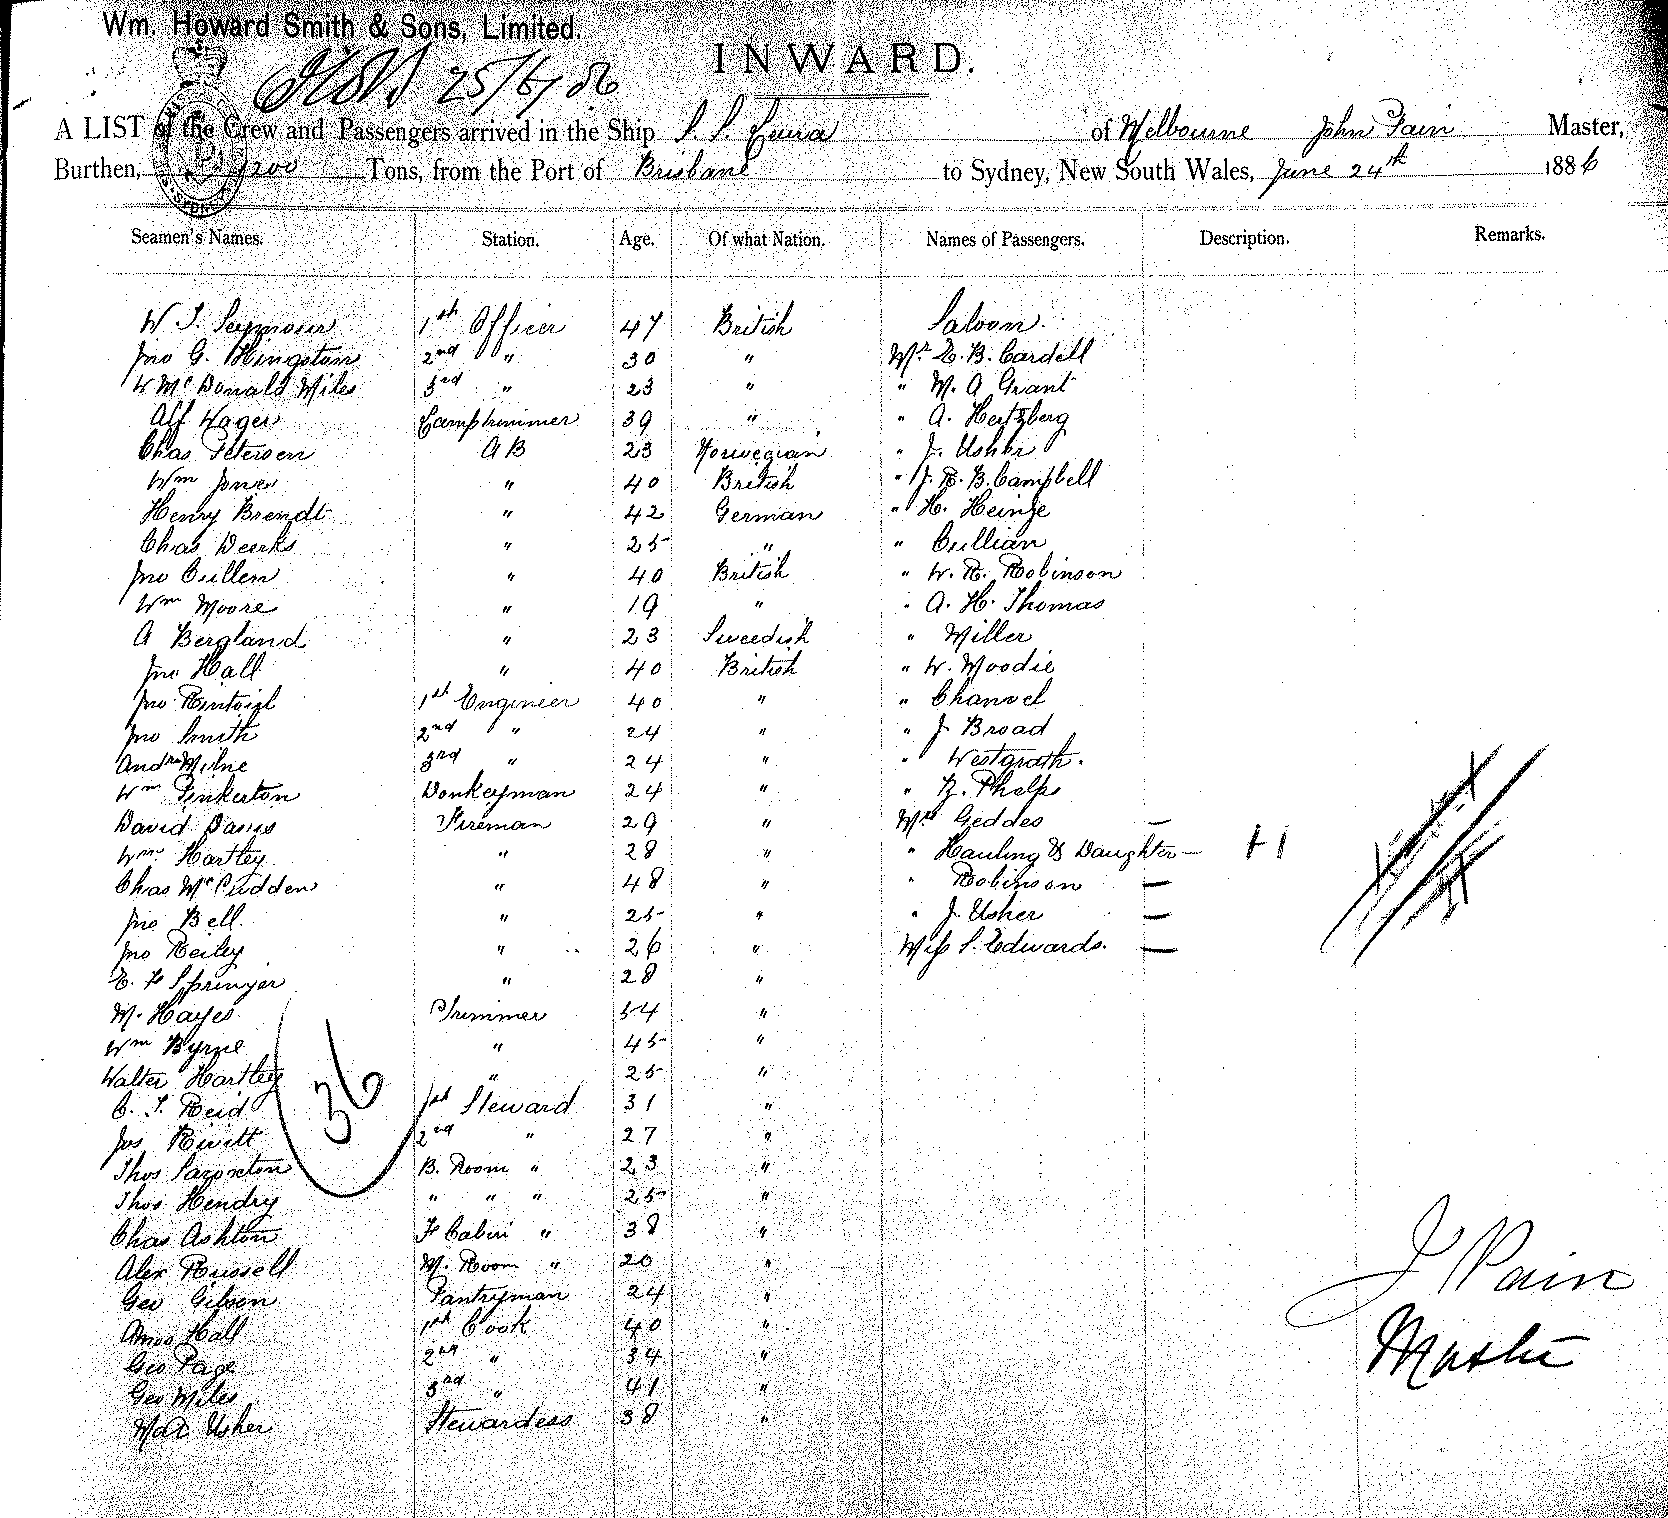 Wm. Howard Smith & Sons, Limited.
25/6/86
INWARD.
A LIST of the Crew and Passengers arrived in the Ship S. S. Leura of Melbourne John Pain Master,
Burthen, 1200 Tons, from the Port of Brisbane to Sydney, New South Wales, June 24th 1886
Seamen's Names. Station. Age. Of what Nation. Names of Passengers. Description. Remarks.
W J. Seymour 1st Officer 47 British Saloon.
Jno G. Hingston 2nd " 30 " Mr. E. B. Cardell
W Mc Donald Miles 3rd " 23 " " W. A Grant
Alf Wager Lamptrimmer 39 " " A. Hertzberg
Chas Petersen A B 23 Norwegian " J. Usher
Wm Jones " 40 British " J. R. B. Campbell
Henry Brendt " 42 German " H. Heinze
Chas Deerks " 25 " " Cullian
Jno Cullen " 40 British " W. R. Robinson
Wm Moore " 19 " " A. H. Thomas
A Bergland " 23 Sweedish " Miller
Jno Hall " 40 British " W. Moodie
Jno Rintoul 1st Engineer 40 " "
Jno Smith 2nd " 24 " " J. Broad
Andrw Milne 3rd " 24 " " Westgrath.
Wm Pinkerton Donkeyman 24 " " Z. Phelps
David Davis Fireman 29 " Mrs Geddes —
Wm Hartley " 28 " " Hauling & Daughter — + 1
Chas Mc Cudden " 48 " " Robinson —
Jno Bell " 25 " " J. Usher —
Jno Reiley " 26 " Miss S. Edwards. —
E. F Springer " 28 "
M. Hayes Trimmer 54 "
Wm Byrne " 45 "
Walter Hartley " 25 "
C. J. Reid 1st Steward 31 "
36
Jos 2nd " 27 "
Thos B. Room " 23 "
Thos Hendry " " " 25 "
Chas Ashton F Cabin " 38 "
Alex Russell M. Room " 20 "
Geo Gibson Pantryman 24 "
J Pain
Amos Hall 1st Cook 40 "
Master
Geo Page 2nd " 34 "
Geo Miles 3rd " 41 "
Usher Stewardess 38 "